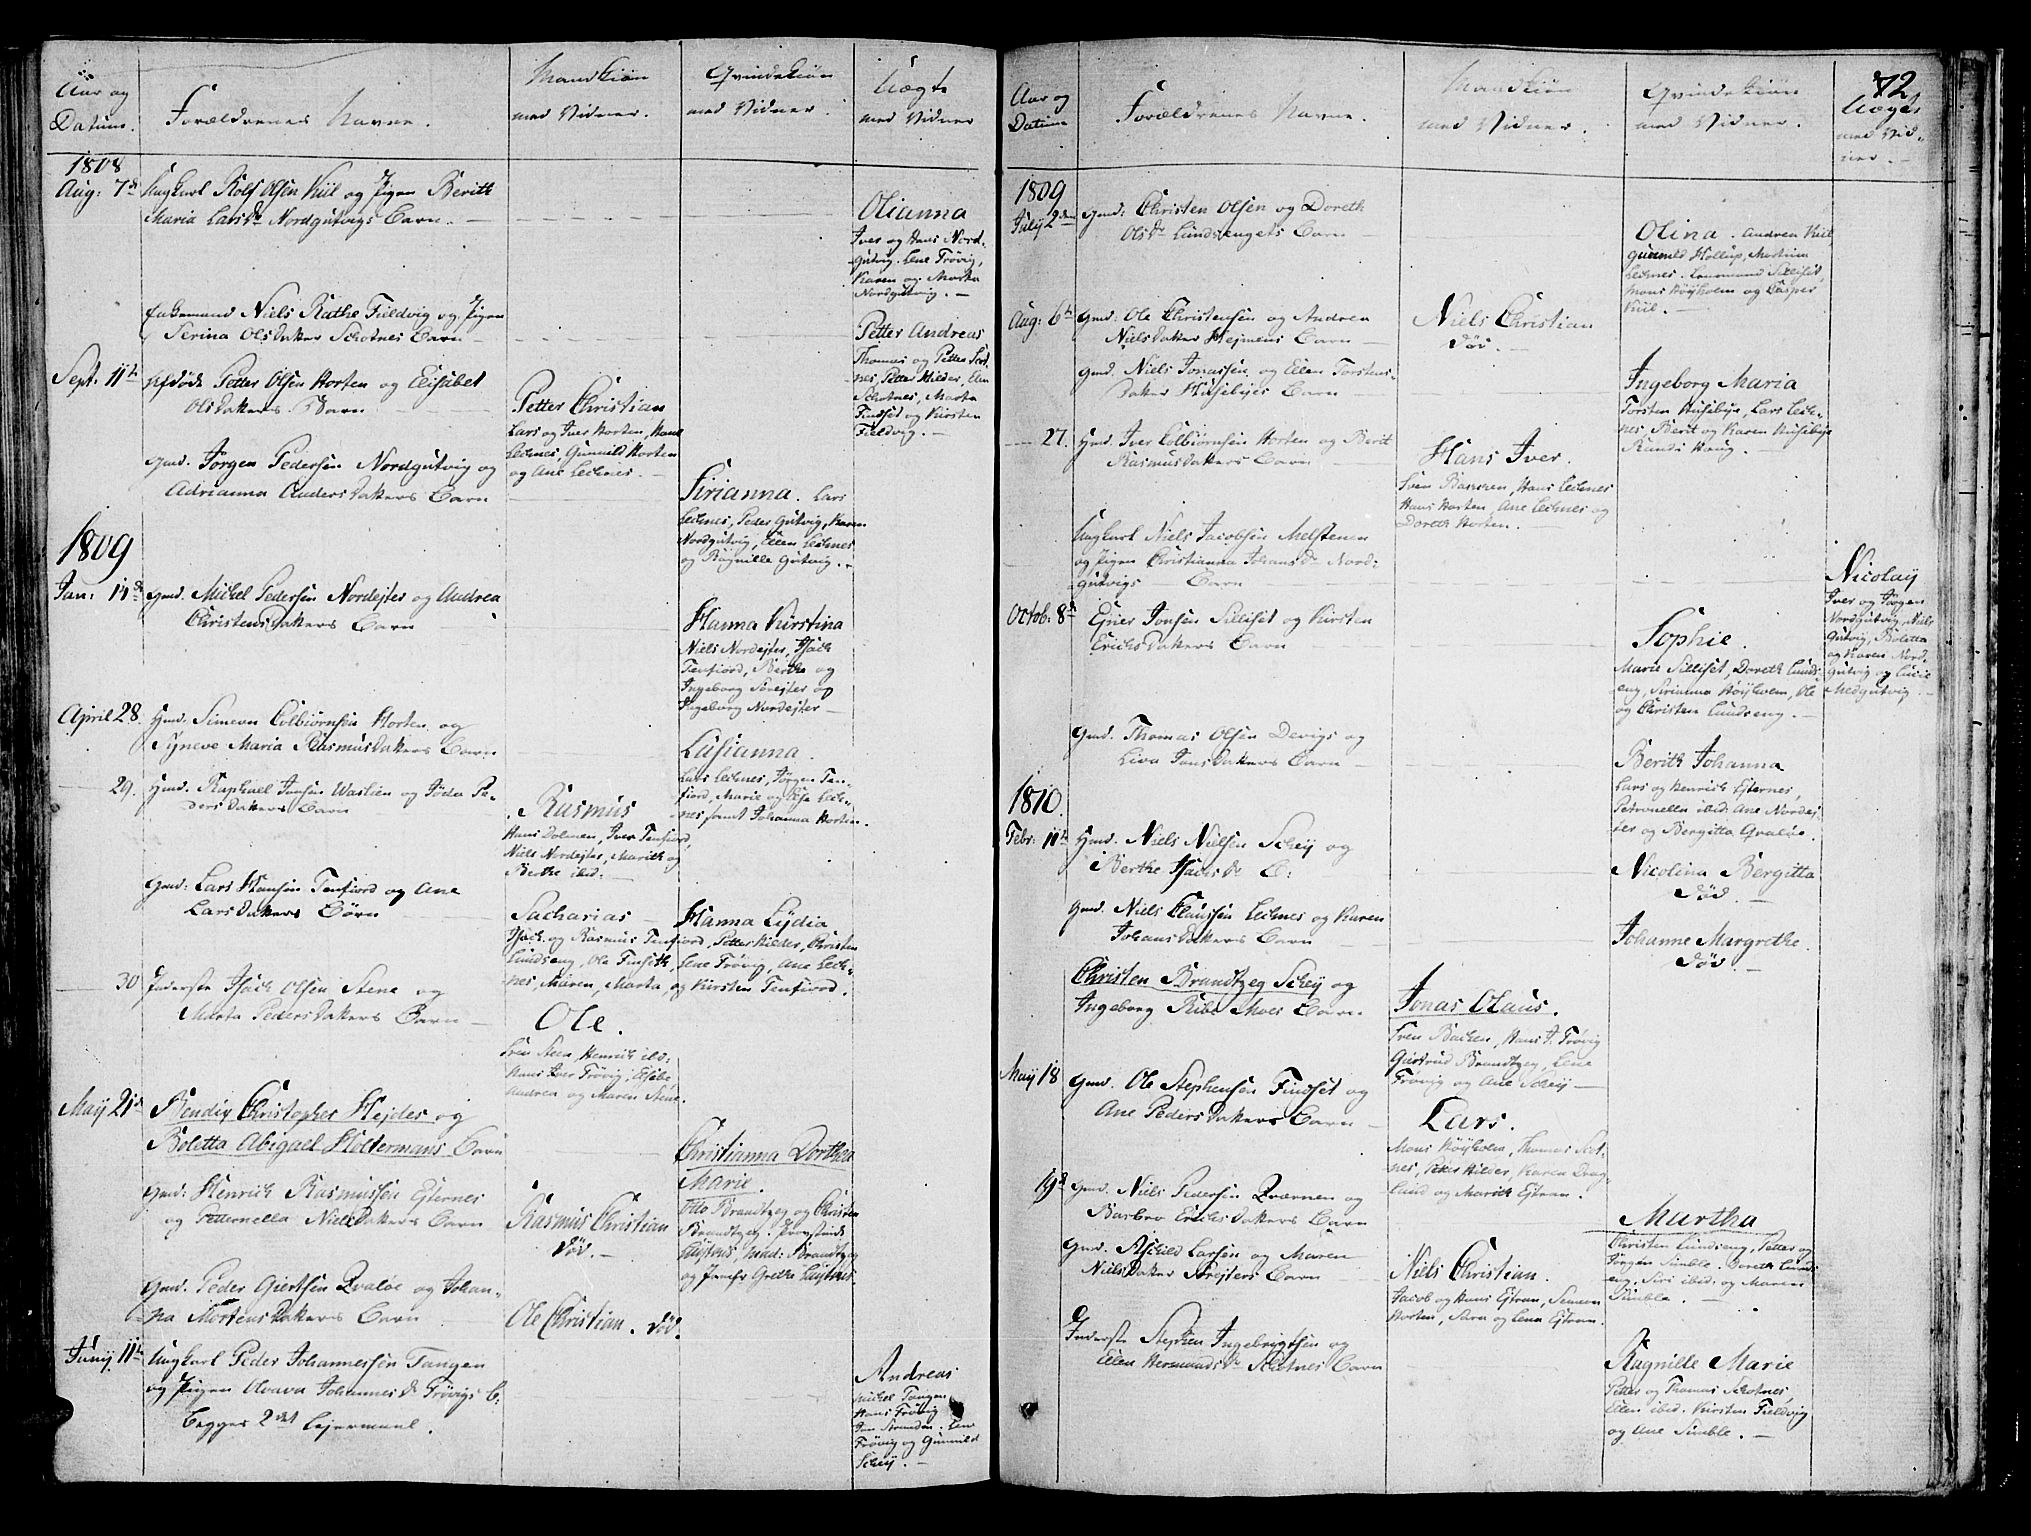 Aar og
Datum.
Forældrenes Navne.
Mandkiøn
med Vidner.
Qvindekiøn
med Vidner.
Uægte
med Vidner
1808
Aug: 7de Ungkarl Rolf Olsen Kiil og Pigen Berith
Maria Larsdr Nordgutvigs Barn.
Olianna
Iver og Hans Nord-
gutvig. Lene Trøvig,
Karen og Marta
Nordgutvig.
Enkemand Niels Rathe Fieldvig og Pigen
Serina Olsdatter Schotnes Barn
Petter Andreas
Thomas og Petter Scot-
nes, Petter Hilder, Elen
Schotnes, Marta
Findset og Kirsten
Fieldvig.
Sept. 11te Afdøde Petter Olsen Horten og Elisabet
Olsdatters Barn
Petter Christian
Lars og Iver Horten, Hans
Lechnes, Gunnild Horten
og Ane Lechnes.
Gmd. Jørgen Pedersen Nordgutvig og
Adrianna Andersdatters Barn
Sirianna. Lars
Lechnes, Peder Gutvig, Karen
Nordgutvig, Ellen Lechnes
og Ragnille Gutvig.
1809
Jan: 14de Gmd. Michel Pedersen Nordejter og Andrea
Christensdatters Barn
Hanna Kirstina
Niels Nordejter, Isach
Tenfiord, Berthe og
Ingeborg Sørejter og
Ingeborg Nordejter
April 28. Gmd. Simeon Colbiørnsen Horten og
Syneve Maria Rasmusdatters Barn
Lusianna
Lars Lechnes, Jørgen Ten-
fiord, Marie og Else Lech-
nes samt Johanna Horten.
29. Gmd. Raphael Jensen Waslien og Jøda Pe-
dersdatters Barn
Rasmus
Hans Dolmen, Iver Tenfiord,
Niels Nordejter, Marith og
Berthe ibid.
Gmd: Lars Hansen Tenfiord og Ane
Larsdatters Børn
Sacharias
Hanna Lydia
Isach og Rasmus Tenfiord, Petter Hilder, Christen
Lundseng, Ole Finseth, Lene Trøvig, Ane Lech-
nes, Maren, Marta, og Kirsten Tenfiord.
30 Inderste Isach Olsen Stene og
Marta Pedersdatters Barn
Ole.
Sven Steen, Henrich ibd:
Hans Iver Trøvig, Elsebe
Andrea og Maren Stene.
Maij 21de Bendix Christopher Hejdes og
Boletta Abigael Holtermans Barn
Christianna Dorthea
Marie.
Otto Brandtzeg og Christen
Brandtzeg. Provstinde
Mad: Brandtzeg
og Jomfr Grethe
Gmd: Henrich Rasmussen Ejternes
og Petternella Nielsdatters Barn
Rasmus Christian
død.
Gmd. Peder Giertsen Qvaløe og Johan-
na Mortensdatters Barn
Ole Christian. død.
Junij 11te Ungkarl Peder Johannessen Tangen
og Pigen Olvava Johannesdr Trøvigs B:
begges 2det Lejermaal.
Andreas
Michel Tangen
Hans Trøvig
Trøvig og Gunnild
Scheij.
72
Aar og
Datum
Forældrenes Navne.
Mandkiøn
med Vidner.
Qvindekiøn
med Vidner.
Uægte
med Vid-
ner.
1809
July 2den Gmd: Christen Olsen og Doreth
Olsdr Lundsengets Barn
Olina. Andrea Kiil
Gunnild Hollup, Martina
Lechnes. Silliset,
Mons Høyholm og Casper
Kiil.
Aug: 6te Gmd: Ole Christensen og Andrea
Nielsdatter Hejmens Barn
Niels Christian
død.
Gmd. Niels Jonassen og Ellen Torstens-
datter Husebyes Barn
Ingeborg Maria
Torsten Husebye, Lars Lech-
nes, Berit og Karen Husebye
Randi Haug.
27. Gmd. Iver Colbiørnsen Horten og Berit
Rasmusdatters Barn
Hans Iver.
Sven Bachen, Hans Lechnes
Hans Horten, Ane Lechnes og
Doreth Horten.
Ungkarl Niels Jacobsen Melstenen
og Pigen Christianna Johansdr Nord-
gutvigs Barn
Nicolay
Iver og Jørgen
Nordgutvig, Niels
Gutvig, Boletta
og Karen Nord-
gutvig og Lucie
Medgutvig.
Octob: 8de Ejner Jonsen Silliset og Kirsten
Erichsdatters Barn
Sophie.
Marie Silliset, Doreth Lunds-
eng, Sirianna Høyholm, Ole
og Christen Lundseng.
Gmd. Thomas Olsen Devigs og
Liva Jonsdatters Barn
Berith Johanna
Lars og Henrich Ejternes,
Petronella ibid: Ane Nordej-
ter og Bergitta Qvaløe.
1810.
Febr: 11te Gmd. Niels Nielsen Scheij og
Berthe Isachsdr B:
Nicolina Bergitta
død.
Gmd. Niels Claussen Lechnes og Karen
Johansdatters Barn
Johanne Margrethe.
død.
Christen Brandtzeg Scheij og
Ingeborg Ribe Moes Barn
Jonas Claus.
Sven Bachen, Hans J. Trøvig
Giertrud Brandtzeg, Lene
Trøvig og Ane Scheij
Maij 18 Gmd. Ole Stephensen Findset og
Ane Pedersdatters Barn
Lars.
Mons Høyholm, Thomas Scot-
nes, Peter Hilder, Karen Drag-
lund og Marith Ejtran.
19de Gmd. Niels Pedersen Qværnen og
Barbro Erichsdatters Barn
Martha
Christen Lundseng, Petter og
Jørgen Simble. Doreth Lunds-
eng, Siri ibid. og Maren
Simble.
Gmd. Aschild Larsen og Maren
Nielsdatter Srejters Barn
Niels Christian.
Jacob og Hans Ejtran, Simen
Horten, Sara og Lena Ejtran.
Inderste Stephen Ingebrigtsen og
Ellen Hermandsdr Schotnes Barn
Ragnille Marie
Petter og Thomas Schotnes,
Ellen ibid. Kirsten Fieldvig
og Ane Simble.